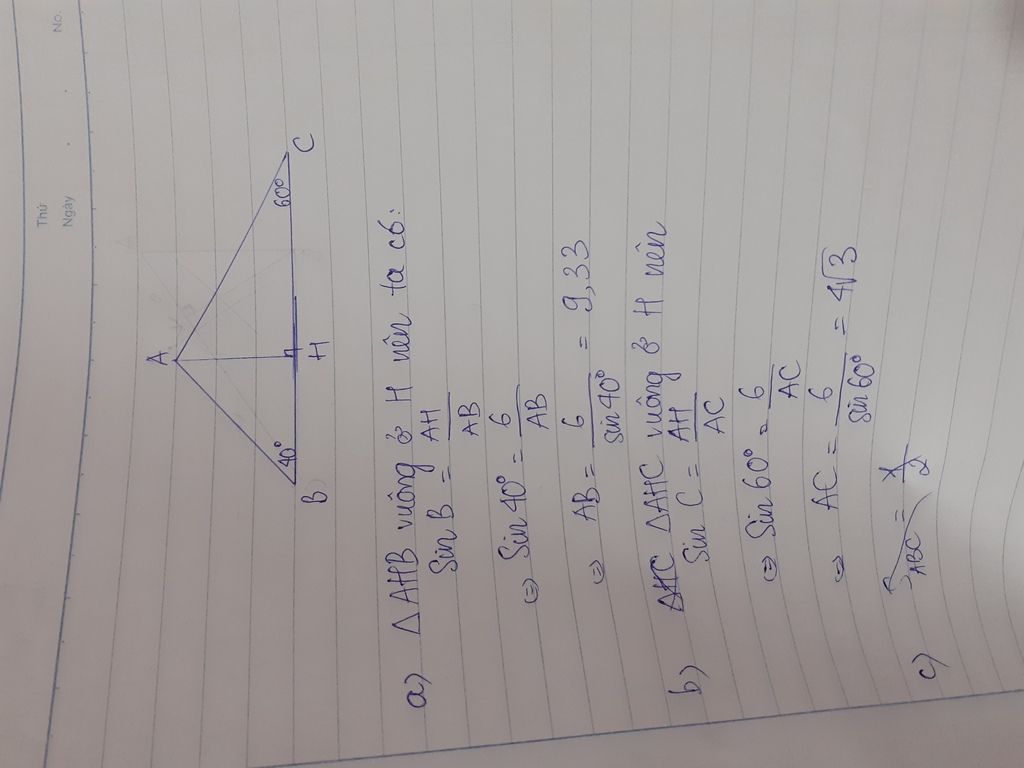 Thứ
Ngày
No.
A
40°
60°
B
H
C
a) ΔAHB vuông ở H nên ta có:
Sin B = AH/AB
(=) Sin 40° = 6/AB
=) AB = 6/sin 40° = 9,33
b) ΔAHC vuông ở H nên
Sin C = AH/AC
(=) Sin 60° = 6/AC
=) AC = 6/sin 60° = 4√3
c)